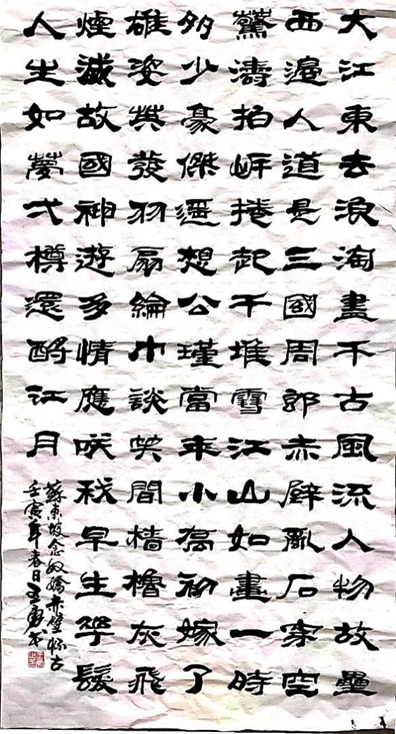 大江東去浪淘盡千古風流人物故壘
西邊人道是三國周郎赤壁亂石穿空
驚濤拍岍捲起千堆雪江山如畫一時
多少豪傑遥想公瑾當年小喬初嫁了
雄姿英發羽扇綸巾談笑間檣櫓灰飛
煙滅故國神遊多情應咲我早生華髮
人生如夢一樽還酹江月
蘇東坡念奴嬌赤壁懷古
壬寅年春日